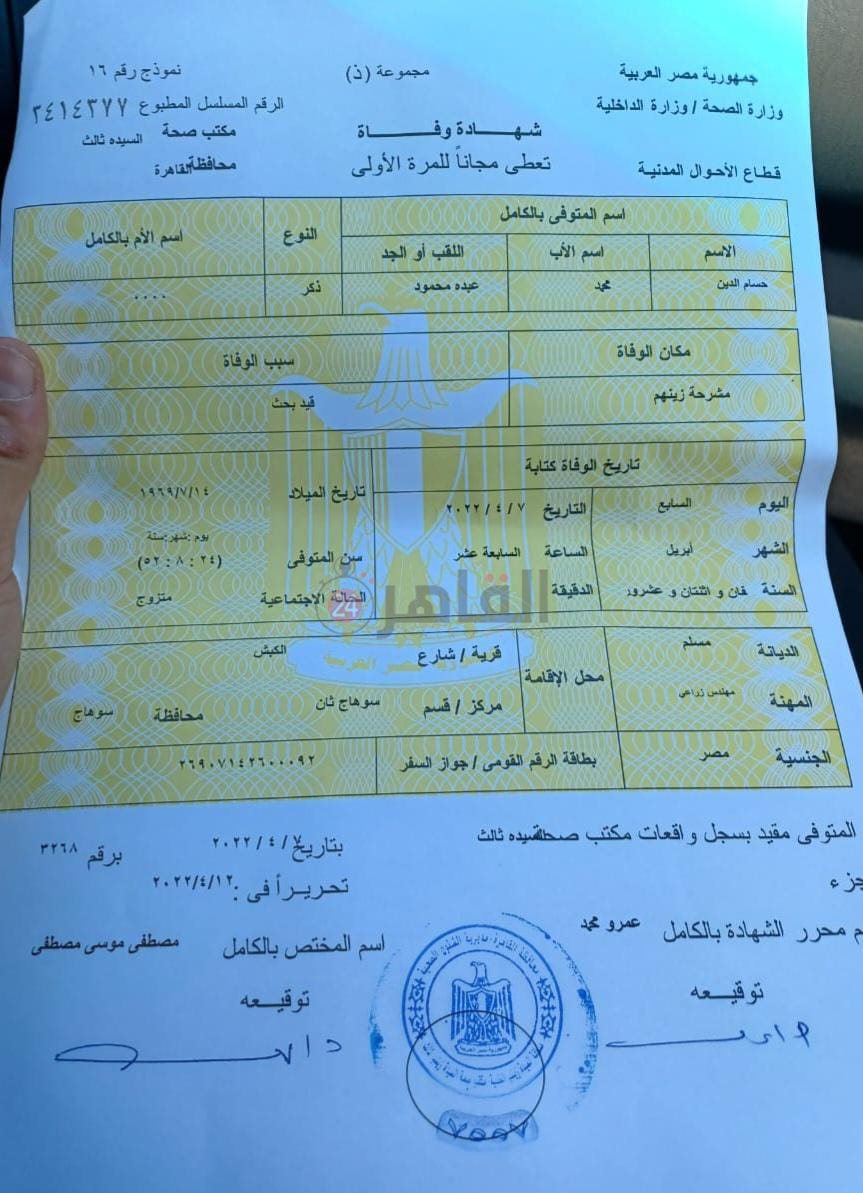 جمهورية مصر العربية
مجموعة (ذ)
نموذج رقم ١٦
وزارة الصحة / وزارة الداخلية
الرقم المسلسل المطبوع ٣٤١٤٣٧٧
شهـــادة وفـــاة
مكتب صحة السيده ثالث
قطاع الأحوال المدنية
تعطى مجاناً للمرة الأولى
محافظة القاهرة
اسم المتوفى بالكامل
النوع
اسم الأم بالكامل
الاسم
اسم الأب
اللقب أو الجد
حسام الدين
محمد
عبده محمود
ذكر
....
مكان الوفاة
سبب الوفاة
مشرحة زينهم
قيد بحث
تاريخ الوفاة كتابة
اليوم السابع
التاريخ ٢٠٢٢ / ٤ / ٧
تاريخ الميلاد ١٩٦٩/٧/١٤
يوم :شهر :سنة
الشهر أبريل
الساعة السابعة عشر
سن المتوفى (٥٢ : ٨ : ٢٤)
السنة فان و اثنتان و عشرور
الدقيقة
الحالة الاجتماعية متزوج
القاهرة 24
الديانة مسلم
محل الإقامة
قرية / شارع الكبش
المهنة مهندس زراعي
مركز / قسم سوهاج ثان
محافظة سوهاج
الجنسية مصر
بطاقة الرقم القومى / جواز السفر
٢٦٩٠٧١٤٢٦٠٠٠٩٢
المتوفى مقيد بسجل واقعات مكتب صحة السيده ثالث
بتاريخ ٢٠٢٢ / ٤ / ٧
برقم ٣٢٦٨
جزء
تحريراً فى : ٢٠٢٢/٤/١٢
م محرر الشهادة بالكامل عمرو محمد
اسم المختص بالكامل مصطفى موسى مصطفى
توقيـــعه
توقيـــعه
جمهورية مصر العربية